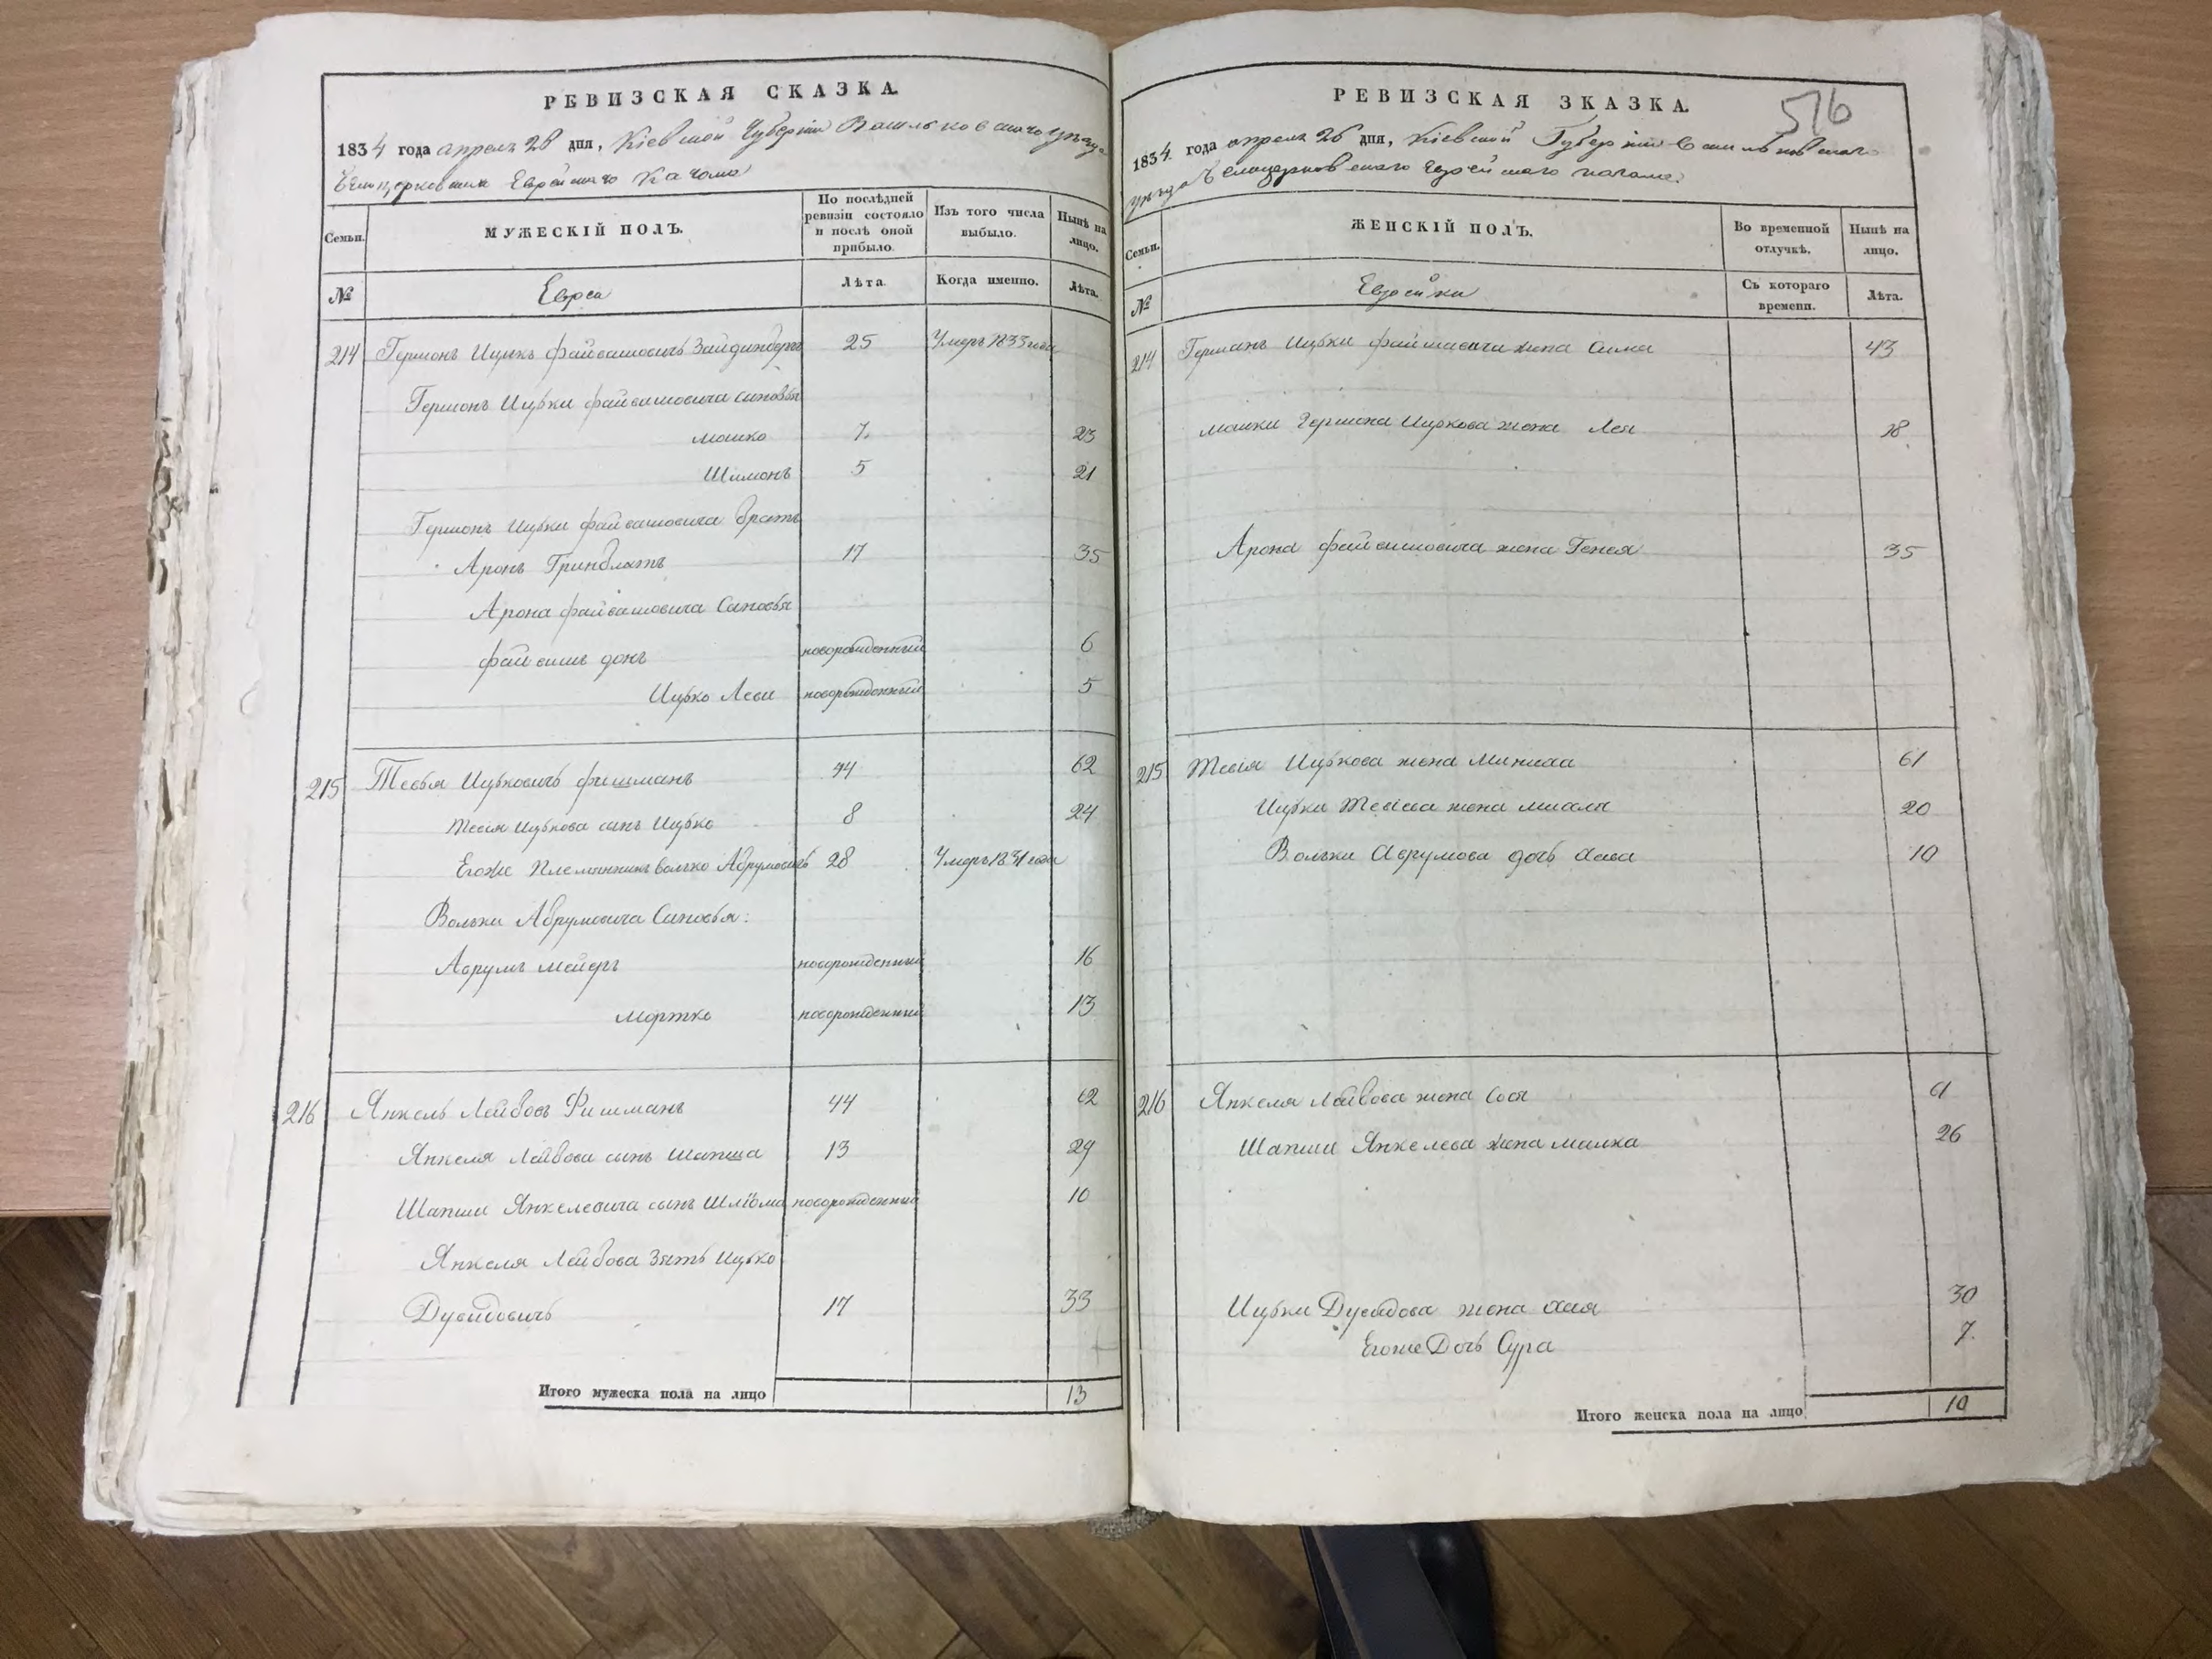 РЕВИЗСКАЯ СКАЗКА.
1834 года апреля 26 дня, Кіевской Губерніи Васильковскаго уѣзда
Белоцерковскаго Еврейскаго Кагала
Семьи.
МУЖЕСКІЙ ПОЛЪ.
По послѣдней ревизіи состояло и послѣ оной прибыло.
Изъ того числа выбыло.
Нынѣ на лицо.
№
Евреи
Лѣта.
Когда именно.
Лѣта.
214 Гершонъ Ицько Файвишовичъ 25 Умеръ 1833 года
Гершонъ Ицьки Файвишовича сыновья
Мошко 7. 23
Шимонъ 5 21
Гершонъ Ицьки Файвишовича братъ
Аронъ Гринблатъ 17 35
Арона Файвишовича Сыновья
Файвишъ новорожденный 6
Ицько Леви новорожденный 5
215 Тевья Ицьковичъ Фишманъ 44 62
Тевія Ицькова сынъ Ицько 8 24
Егоже Племянникъ Волько Абрумовичъ 28 Умеръ 1831 года
Вольки Абрумовича Сыновья:
Аврумъ Мейеръ новорожденный 16
Мортко новорожденный 13
216 Янкель Лейбовъ Фишманъ 44 62
Янкеля Лейбова сынъ Шапша 13 29
Шапши Янкелевича сынъ Шліома новорожденный 10
Янкеля Лейбова Зять Ицько
Дувидовичъ 17 33
Итого мужеска пола на лицо 13
РЕВИЗСКАЯ ЗКАЗКА.
516
1834 года апреля 26 дня, Кіевской Губерніи Васильковскаго
уѣзда Белоцерковскаго Еврейскаго кагала.
Семьи.
ЖЕНСКІЙ ПОЛЪ.
Во временной отлучкѣ.
Нынѣ на лицо.
№
Еврейки
Съ котораго времени.
Лѣта.
214 Гершонъ Ицьки Файвишовича жена Сима 43
Мошки Гершона Ицькова жена Лея 18
Арона Файвишовича жена Геня 35
215 Тевія Ицькова жена 61
Ицьки Тевіева жена 20
Вольки Аврумова дочь Хава 10
216 Янкеля Лейбова жена Сося 61
Шапши Янкелева жена Малка 26
Ицьки Дувидова жена Хая 30
Егоже Дочь Сура 7.
Итого женска пола на лицо 10